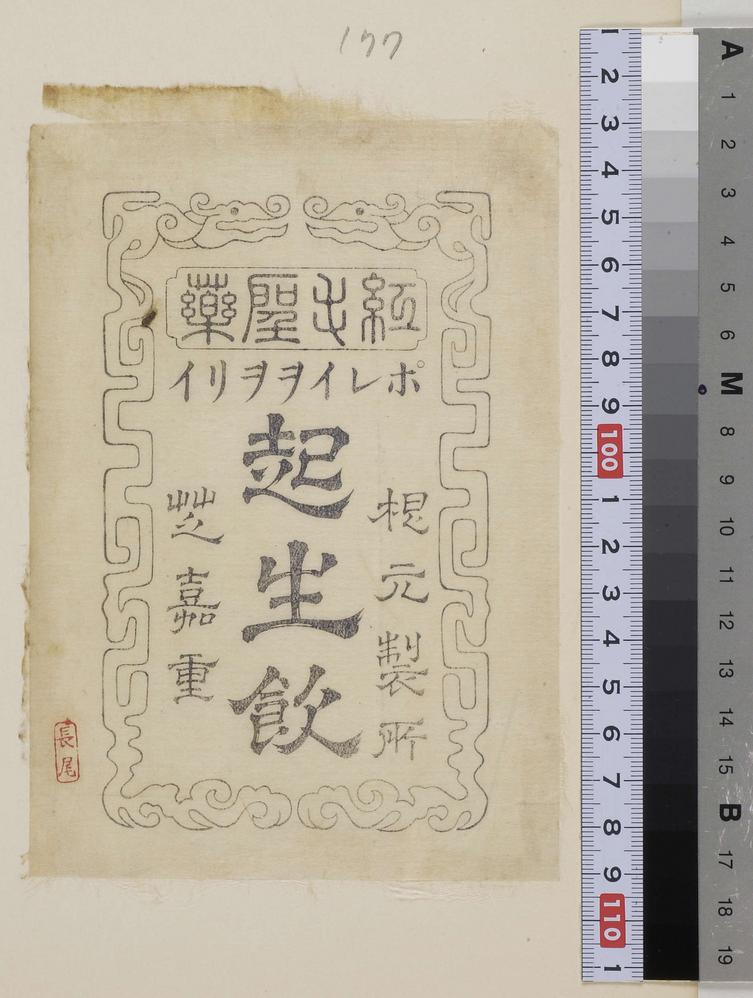 177
紅毛聖藥
ポレイヲヲリイ
根元製所
起生飲
芝嘉重
長尾
1 2 3 4 5 6 7 8 9 100 1 2 3 4 5 6 7 8 9 110 1
A 1 2 3 4 5 6 M 8 9 10 11 12 13 14 15 B 17 18 19